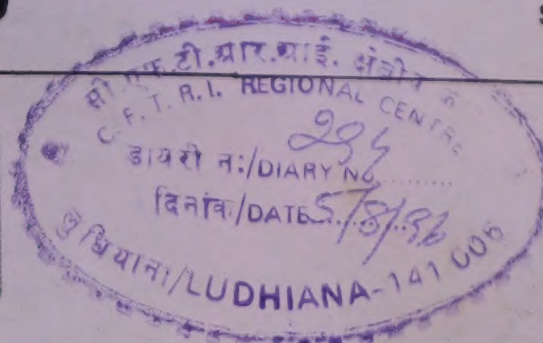 सी.एफ.टी.आर.आई. क्षेत्रीय
C.F.T.R.I. REGIONAL CENTRE
डायरी न:/DIARY No. 294
दिनांक/DATE 5/8/96
लुधियाना/LUDHIANA-141 006